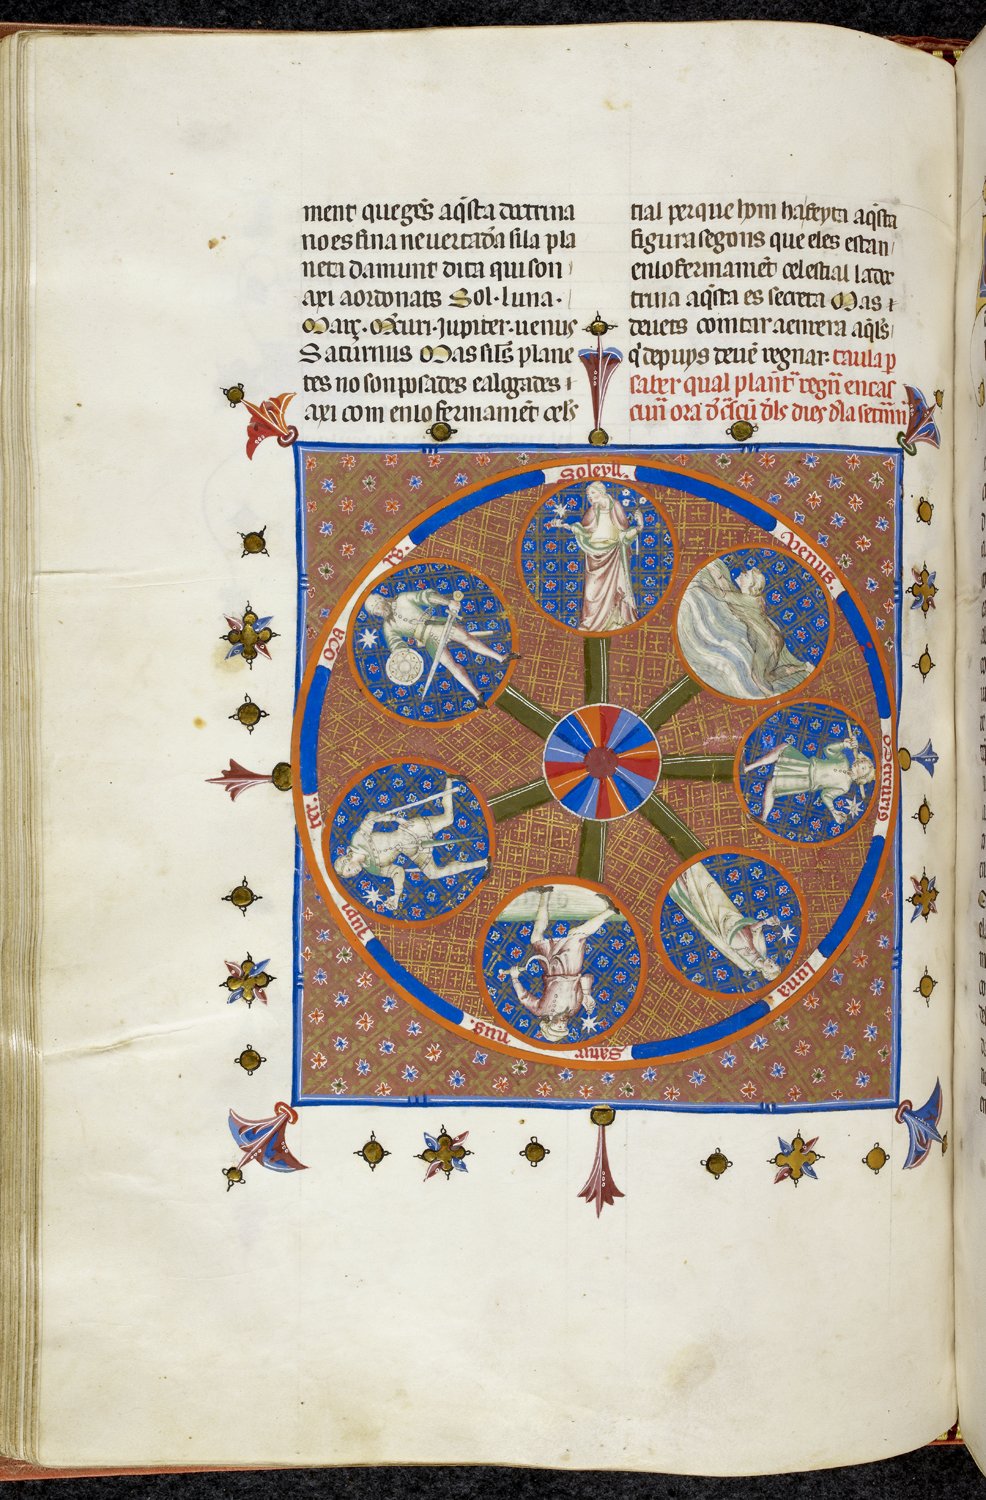 ment que ges aq̃sta doctrina
no es fina ne vertad̃a si la pla
neta damunt dita qui son
axi aordonats Sol·luna·
Març·M̃curi·Jupiter·uenus
Saturnus Mas sil̃s plane
tes no son posades ealogades ⁊
axi com en lo fermamẽt cel̃s
tial per que hom ha feyta aq̃sta
figura segons que eles estan
en lo fermamẽt celestial la doc
trina aq̃sta es secreta Mas ⁊
deuets comtar aenrera aq̃ls
q̃ depuys deuẽ regnar· taula p̱
saber qual planẽt regñ en cas
cuñ ora
soleyll.
Venus.
Mercuris
luna
Satur nus.
Jupi ter.
Ma rç.